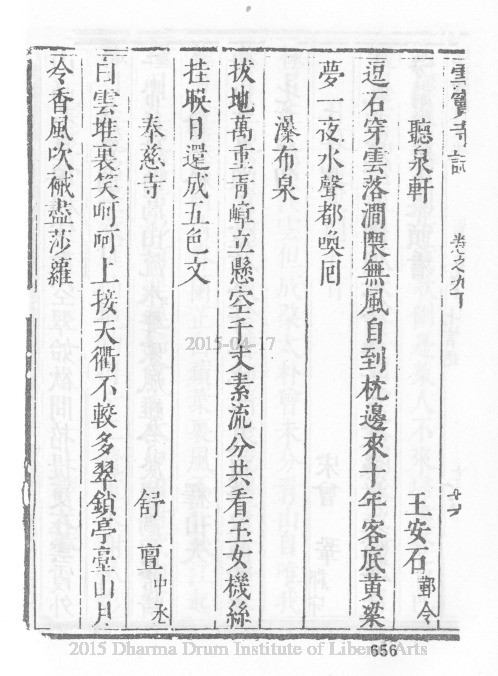 雪竇寺誌 卷之九下
聽泉軒 王安石鄞令
逗石穿雲落澗隈無風自到枕邊來十年客底黃粱
夢一夜水聲都喚囘
瀑布泉
拔地萬重青嶂立懸空千丈素流分共看玉女機絲
挂映日還成五色文
奉慈寺 舒亶中丞
白雲堆裏笑呵呵上接天衢不較多翠鎖亭臺山月
冷香風吹檻盡莎蘿
2015-04-17
656
2015 Dharma Drum Institute of Liberal Arts